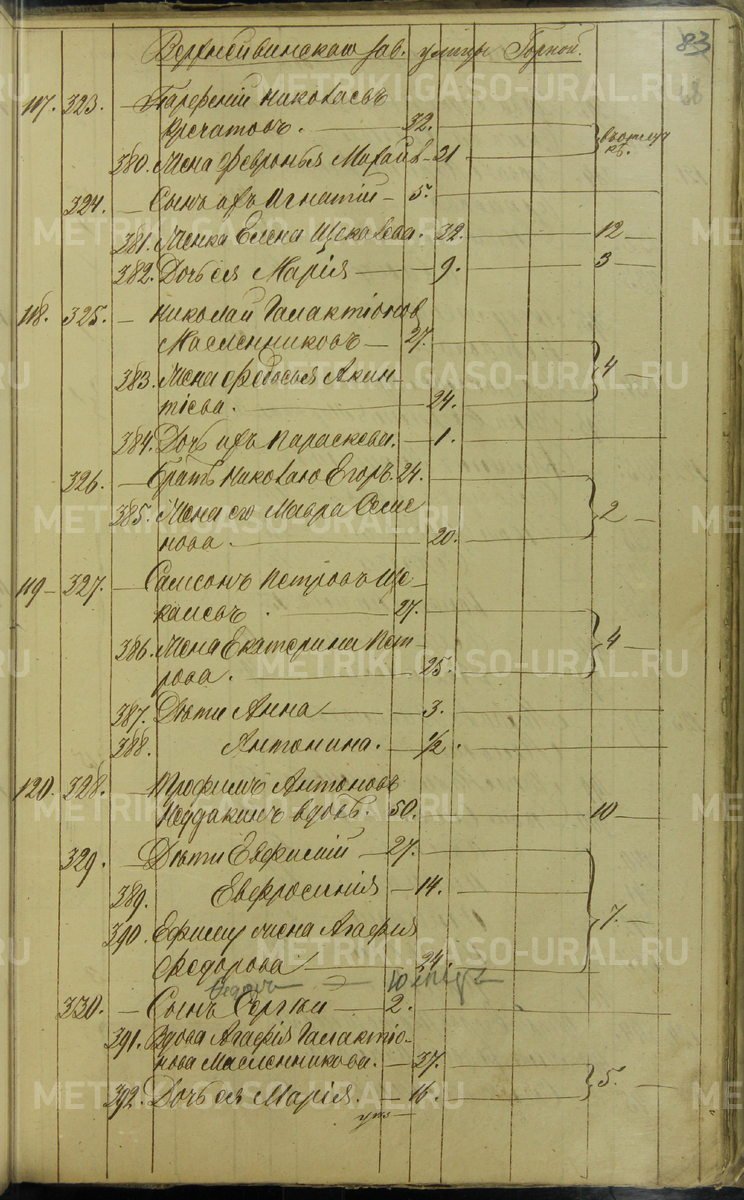 Верхнейвинскаго зав. улицы Горной.
83
117. 323. — Парфений Николаевъ
Кречатовъ. — 32.
380. Жена Февронья Михайл. — 21
324. — Сынъ ихъ Игнатий — 5.
381. Женка Елена Щекалева. 32. 12 —
382. Дочь ея Марія — 9. 3 —
118. 325. — Николай Галактіонов
Масленниковъ — 27.
383. Жена Федосья Акин- 4 —
тіева. — 24.
384. Дочь ихъ Параскева. — 1.
326. — Братъ Николаю Егоръ. 24.
385. Жена его Мавра Семе 2 —
нова. — 20.
119 — 327. — Самсонъ Петровъ Ще-
калевъ. — 27.
386. Жена Екатерина Пет- 4 —
рова. — 25.
387. Дѣти Анна — 3.
388. Антонина. — 1/2.
120. 328. — Трофимъ Антоновъ
вдовъ. 50. 10 —
329. — Дѣти Евфимій — 27.
389. Евфросинія — 14.
390. Ефиму жена Агафья 7. —
Федорова — 24.
330. — Сынъ Сергѣй — 2.
391. Вдова Агафія Галактіо-
нова Масленникова. — 37.
392. Дочь ея Марія. — 16. 5. —
METRIKI.GASO-URAL.RU